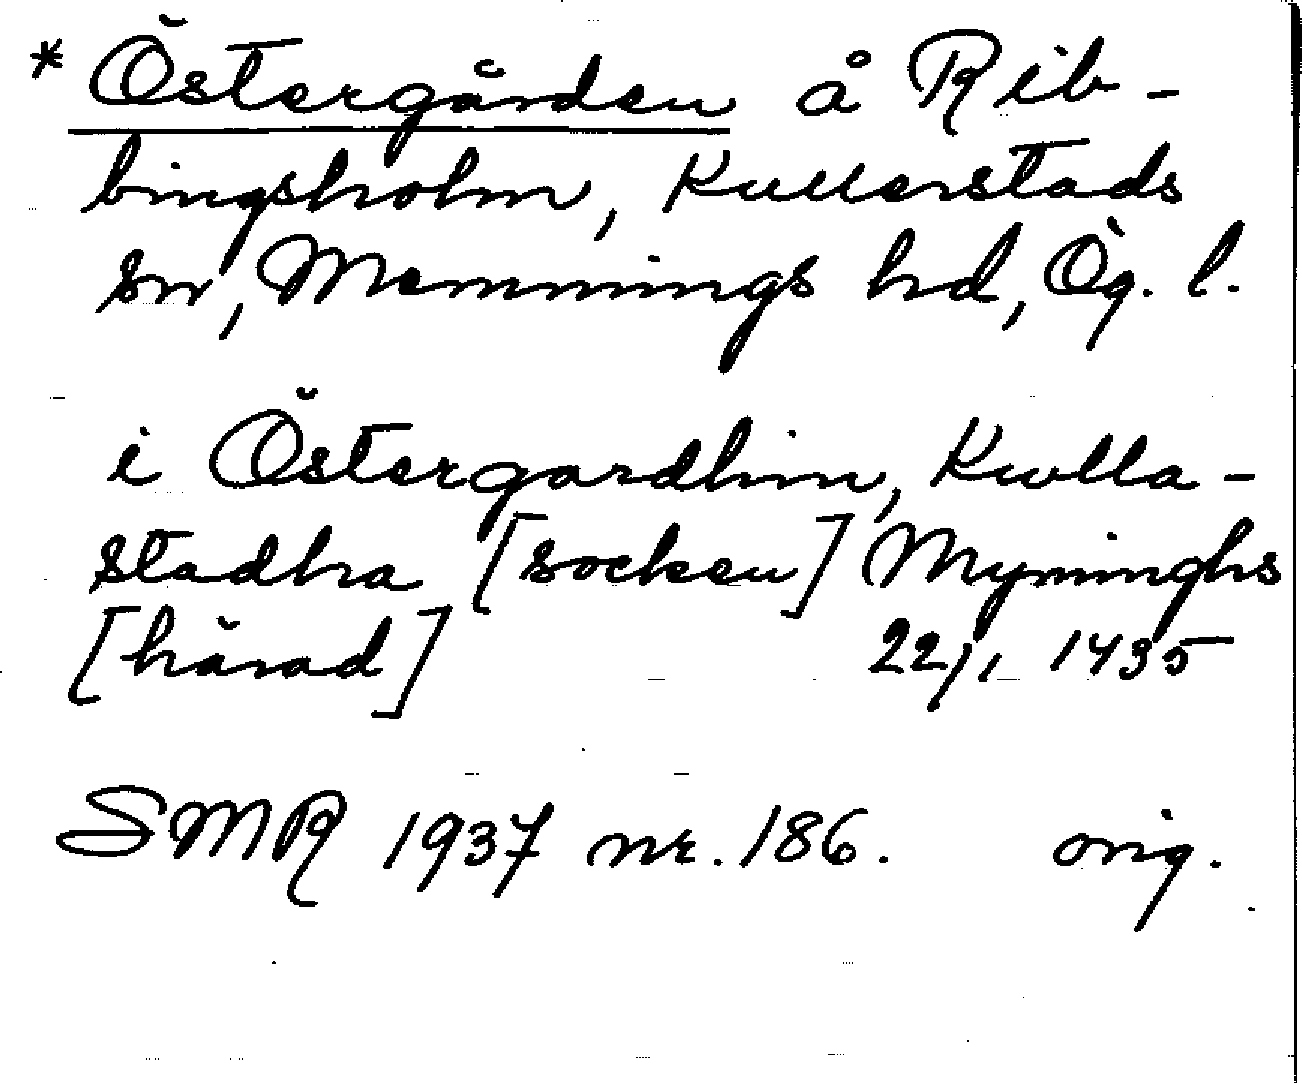 * Östergården å Rib-
bingsholm, Kullerstads
sn, Memmings hd, Ög. l.
i Östergardhin, Kulla-
stadha [socken] Myninghs
[härad] 22/1 1435
SMR 1937 nr. 186. orig.